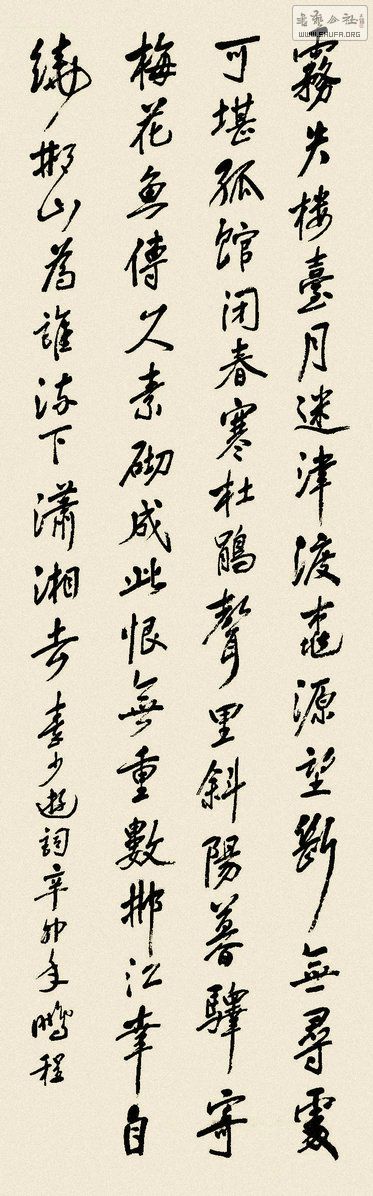 霧失楼臺月迷津渡桃源望斷無尋處
可堪孤館闭春寒杜鵑聲里斜陽暮驛寄
梅花魚傳尺素砌成此恨無重數郴江幸自
繞郴山為誰流下瀟湘去 秦少游詞辛卯年鵬程
書艺公社
WWW.SHUFA.ORG